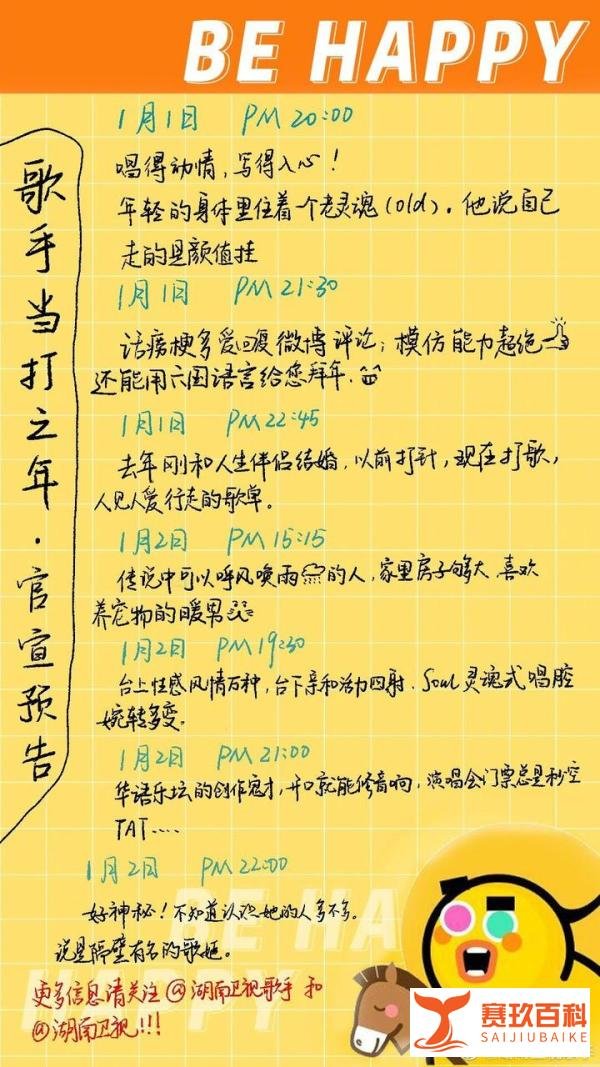 BE HAPPY
歌手当打之年·官宣预告
1月1日 PM 20:00
唱得动情,写得入心!
年轻的身体里住着一个老灵魂(old).他说自己
走的是颜值挂
1月1日 PM 21:30
话痨梗多爱回复微博评论;模仿能力超绝
还能用六国语言给您拜年.
1月1日 PM 22:45
去年刚和人生伴侣结婚,以前打针,现在打歌,
人见人爱行走的歌单。
1月2日 PM 15:15
传说中可以呼风唤雨的人,家里房子够大,喜欢
养宠物的暖男
1月2日 PM 19:30
台上性感风情万种,台下亲和活力四射.Soul灵魂式唱腔
婉转多变.
1月2日 PM 21:00
华语乐坛的创作鬼才,开口就能修音响,演唱会门票总是秒空
TAT....
1月2日 PM 22:00
好神秘!不知道认识她的人多不多。
说是隔壁有名的歌姬。
更多信息请关注@湖南卫视歌手 和
@湖南卫视!!!
BE HA
HAPPY
赛玖百科
SAIJIUBAIKE